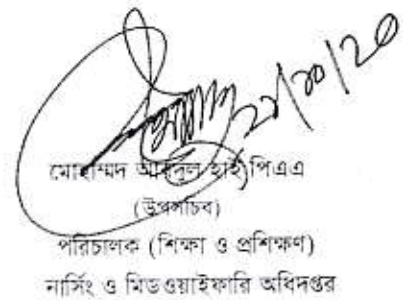 মোহাম্মদ আবদুল হাই পিএএ
(উপসচিব)
পরিচালক (শিক্ষা ও প্রশিক্ষণ)
নার্সিং ও মিডওয়াইফারি অধিদপ্তর